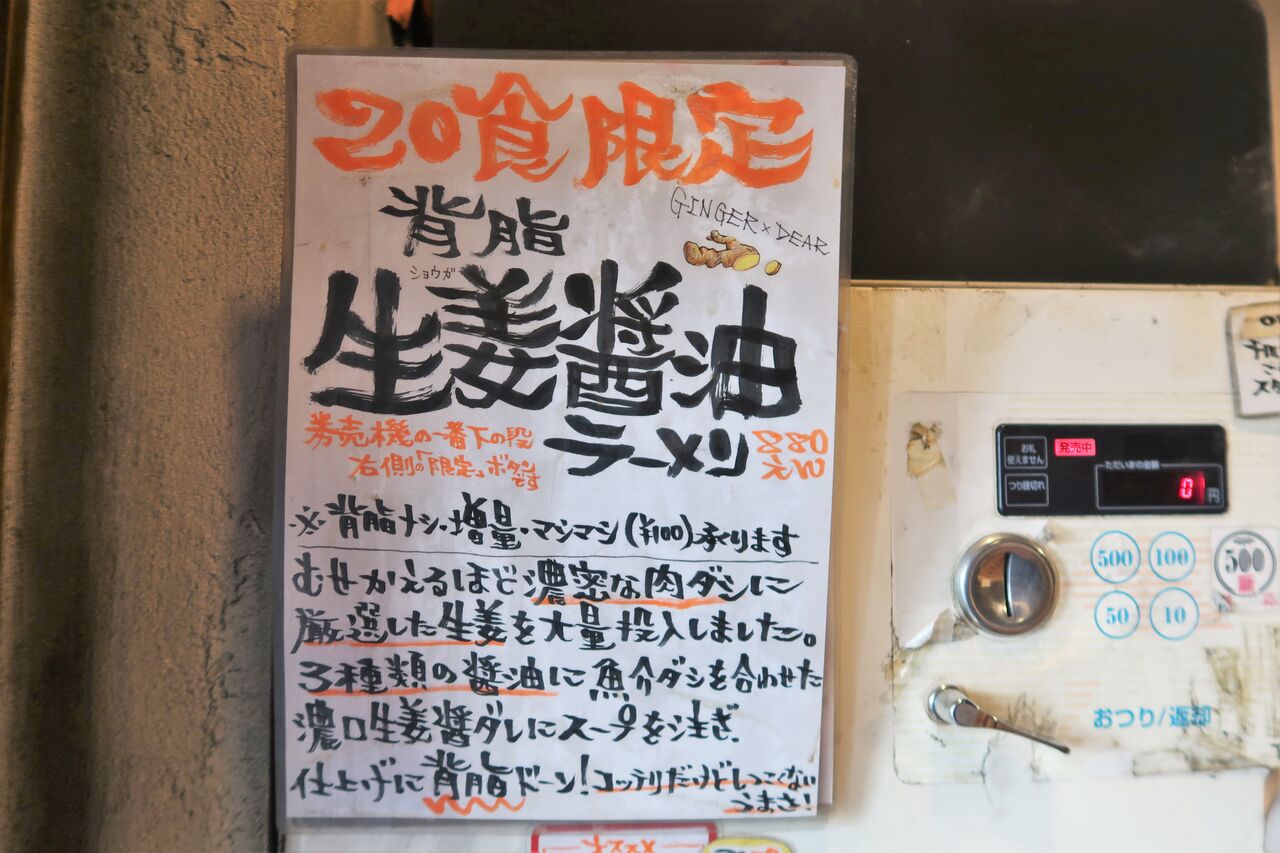 20食限定
背脂
GINGER×DEAR
ショウガ
生姜醤油
ラーメン
880
券売機の一番下の段
右側の「限定」ボタンです
※背脂ナシ・増量・マシマシ(¥100)承ります
むせかえるほど濃密な肉ダシに
厳選した生姜を大量投入しました。
3種類の醤油に魚介ダシを合わせた
濃口生姜醤ダレにスープを注ぎ、
仕上げに背脂ドーン!コッテリだけどしつこない
うまさ!
お札
使えません
発売中
つり銭切れ
ただいまの金額
0円
500
100
50
10
500
おつり/返却